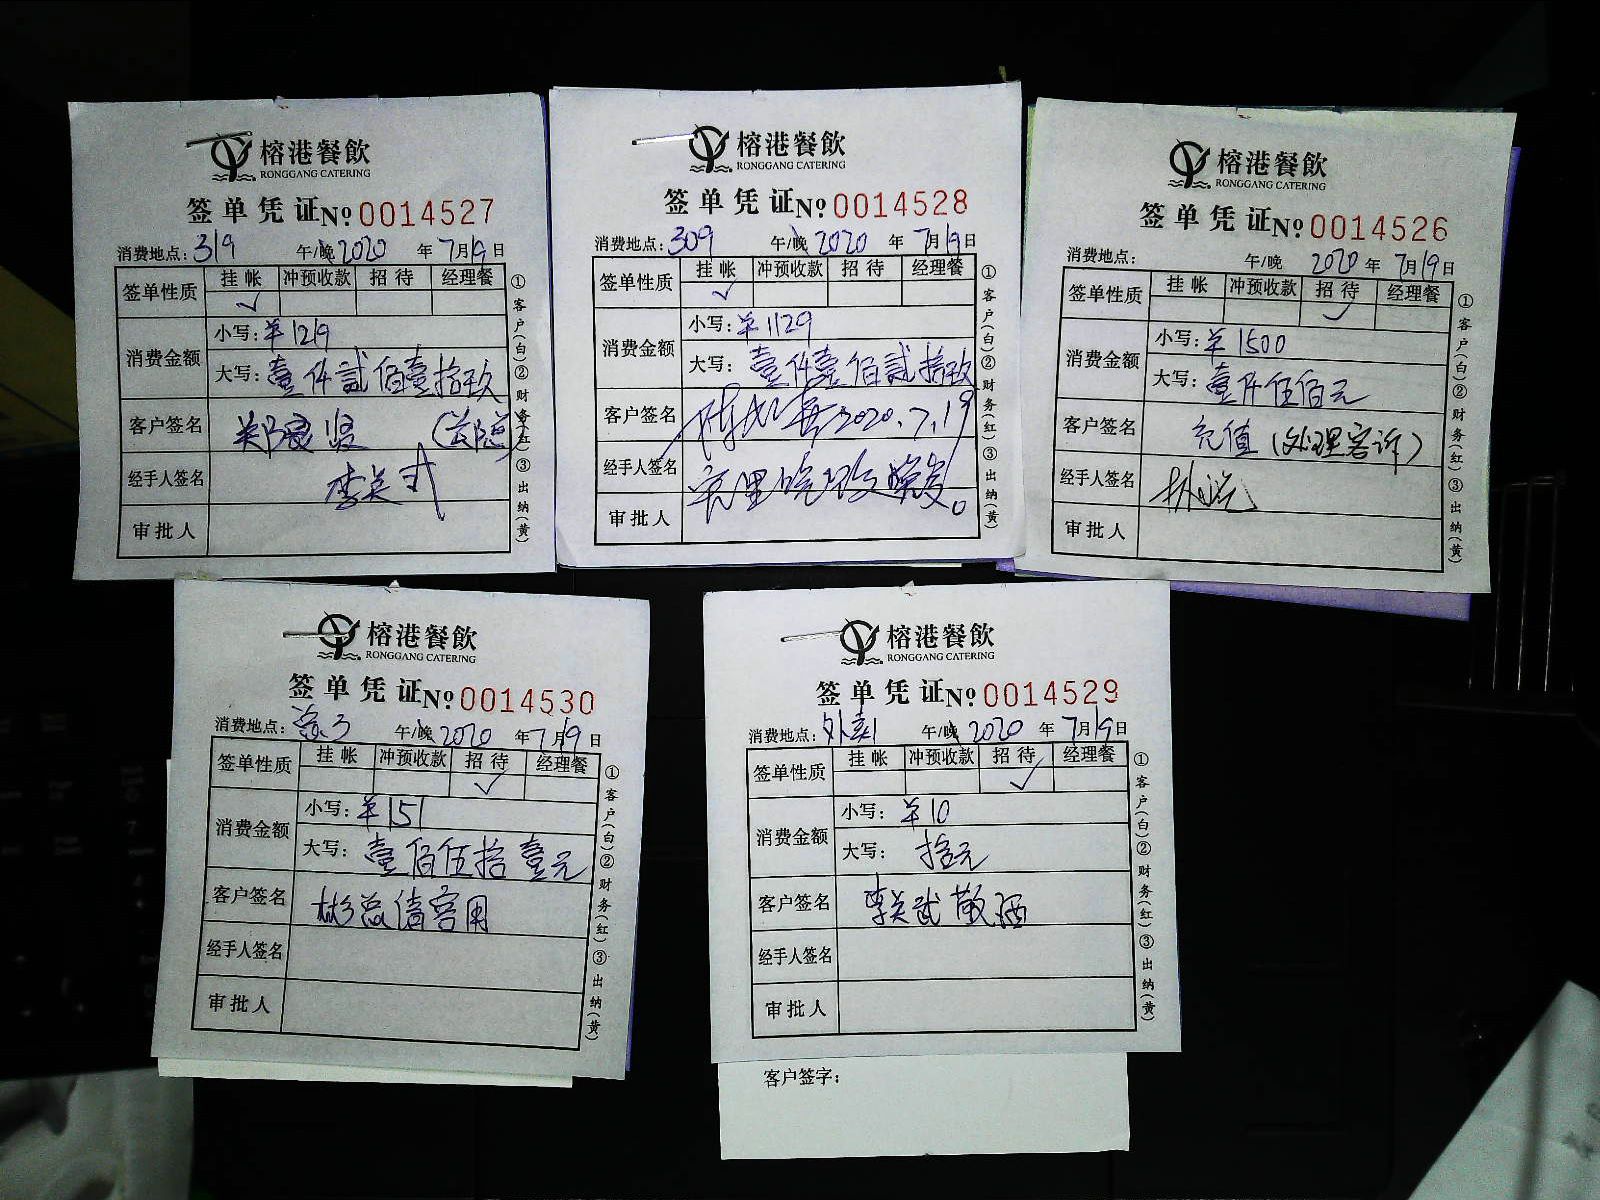 榕港餐飲
RONGGANG CATERING
签单凭证 No 0014527
消费地点: 319 午/晚 2020 年 7月19日
签单性质 挂帐 冲预收款 招待 经理餐
✓
消费金额 小写: ¥1219
大写: 壹仟贰佰壹拾玖
客户签名
经手人签名
审批人
①客户(白)②财务(红)③出纳(黄)
榕港餐飲
RONGGANG CATERING
签单凭证 No 0014528
消费地点: 309 午/晚 2020 年 7月19日
签单性质 挂帐 冲预收款 招待 经理餐
✓
消费金额 小写: ¥1129
大写: 壹仟壹佰贰拾玖
客户签名 2020.7.19
经手人签名
审批人
①客户(白)②财务(红)③出纳(黄)
榕港餐飲
RONGGANG CATERING
签单凭证 No 0014526
消费地点: 午/晚 2020 年 7月19日
签单性质 挂帐 冲预收款 招待 经理餐
✓
消费金额 小写: ¥1500
大写: 壹仟伍佰元
客户签名 充值(处理客诉)
经手人签名
审批人
①客户(白)②财务(红)③出纳(黄)
榕港餐飲
RONGGANG CATERING
签单凭证 No 0014530
消费地点: 午/晚 2020 年 7月19日
签单性质 挂帐 冲预收款 招待 经理餐
✓
消费金额 小写: ¥151
大写: 壹佰伍拾壹元
客户签名 彬总请客用
经手人签名
审批人
①客户(白)②财务(红)③出纳(黄)
榕港餐飲
RONGGANG CATERING
签单凭证 No 0014529
消费地点: 外卖1 午/晚 2020 年 7月19日
签单性质 挂帐 冲预收款 招待 经理餐
✓
消费金额 小写: ¥10
大写: 拾元
客户签名 李关武敬酒
经手人签名
审批人
①客户(白)②财务(红)③出纳(黄)
客户签字: